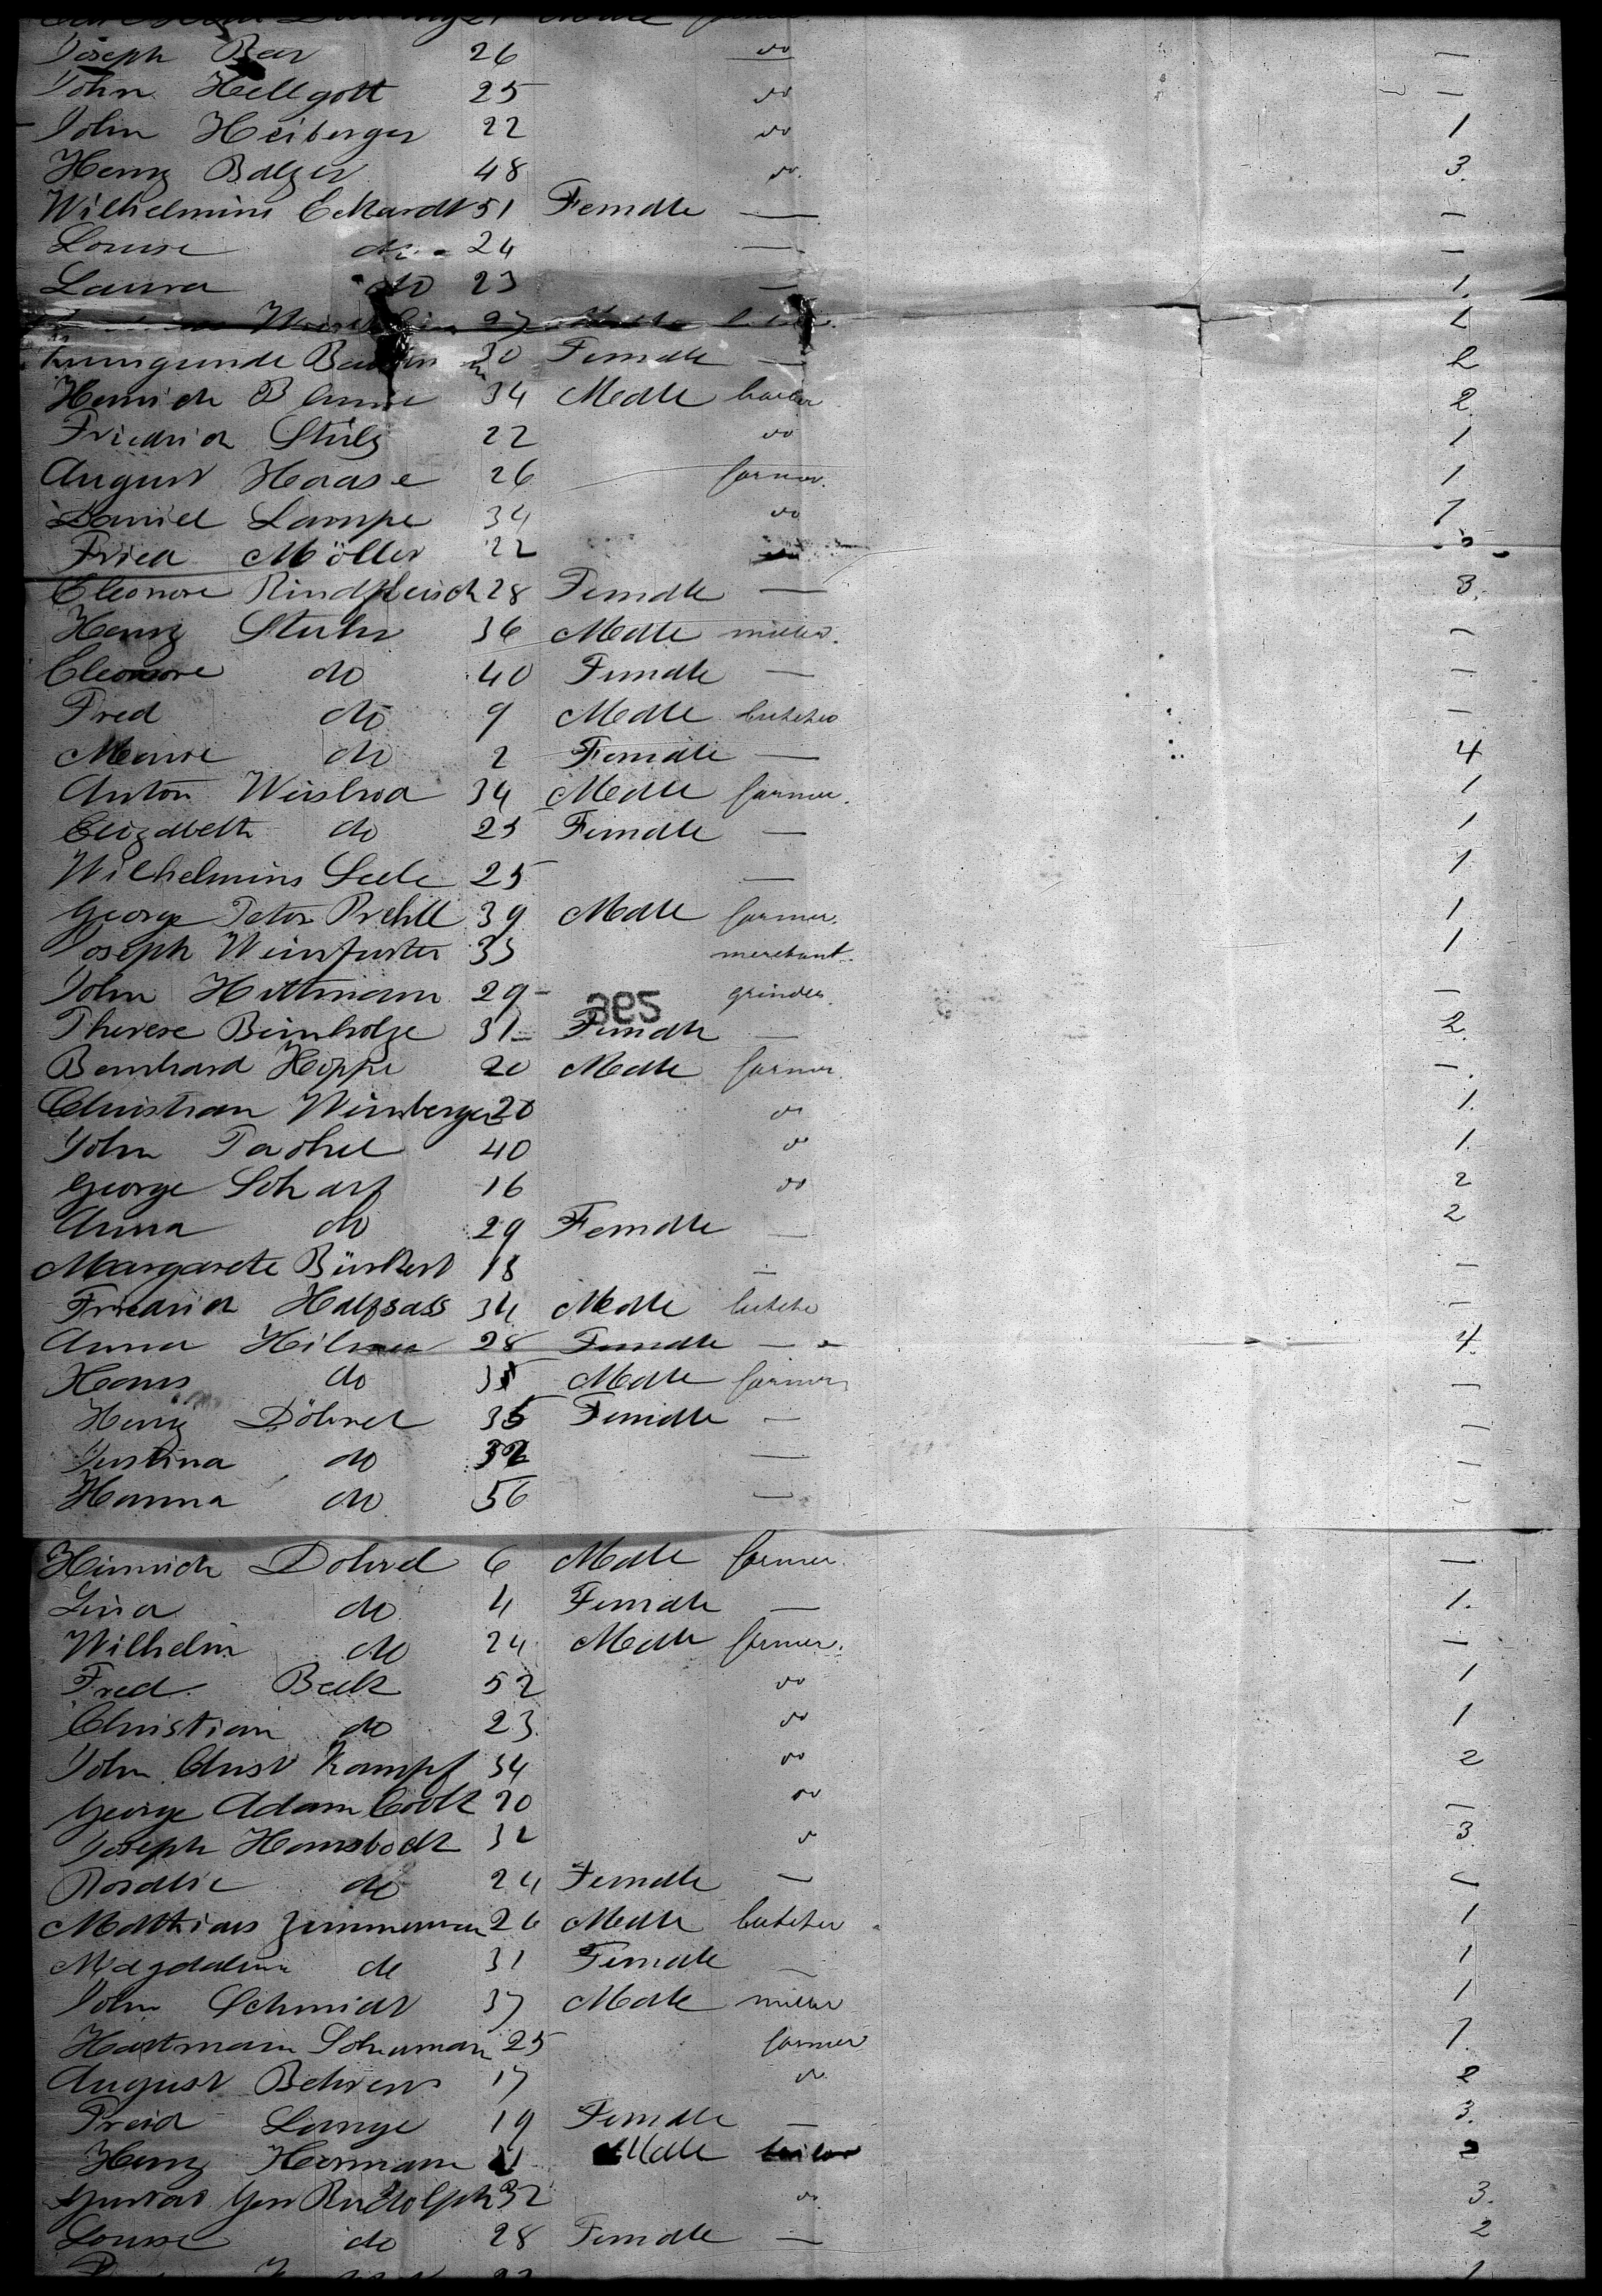 Joseph Beer 26 do —
John Hellgott 25 do —
John Heiberger 22 do 1
Henry Balzer 48 do. 3.
Wilhelmine Eckardt 51 Female — —
Louise do 24 — —
Laura do 23 — 1.
27 Male 1
Kunigunde 30 Female — 2
Heinrich Blume 34 Male 2.
Friedrich Stülz 22 do 1
August Haase 26 farmer. 1
Daniel Lampe 34 do 1
Fried Möller 22
Eleonore Rindfleisch 28 Female — 3.
Henry Stuhr 36 Male miller. —
Eleonore do 40 Female — —
Fred do 9 Male butcher —
Marie do 2 Female — 4
Anton 34 Male farmer. 1
Elizabeth do 25 Female — 1
Wilhelmine Seele 25 — 1
George Peter Prehll 39 Male farmer. 1
Joseph Weinfurter 33 merchant. 1
John Hittmann 29 — grinder. —
Therese Birnholze 31 — Female — 2.
Bernhard Hoppe 20 Male farmer. —.
Christian Weinberger 20 do 1.
John Pachel 40 do 1.
George Scharf 16 do 2
Anna do 29 Female — 2
Margarete Bürkert 18 — —
Friedrich Halfsass 34 Male —
Anna Hilmer 28 Female — 4.
Hans do 35 Male farmer —
Henry Döhrel 35 Female — —
Justina do — —
Hanna do 56 — —
Heinrich Dohrel 6 Male farmer. —
Lina do 4 Female — 1.
Wilhelm do 24 Male farmer. —
Fred Beck 52 do 1
Christian do 23. do 1
John Christ Kampf 34 do 2
George Adam 20 do —
Joseph Hamsbock 32 do 3.
Rosalie do 24 Female — —
Matthias Zimmerman 26 Male butcher 1
Magdalena do 31 Female — 1
John Schmidt 37 Male miller 1
Hartmann Schuman 25 farmer 1.
August Behrens 17 do. 2
Lange 19 Female — 3.
Henry Hermann Male 2
Gustav Rudolph 32 do. 3.
Louise do 28 Female — 2